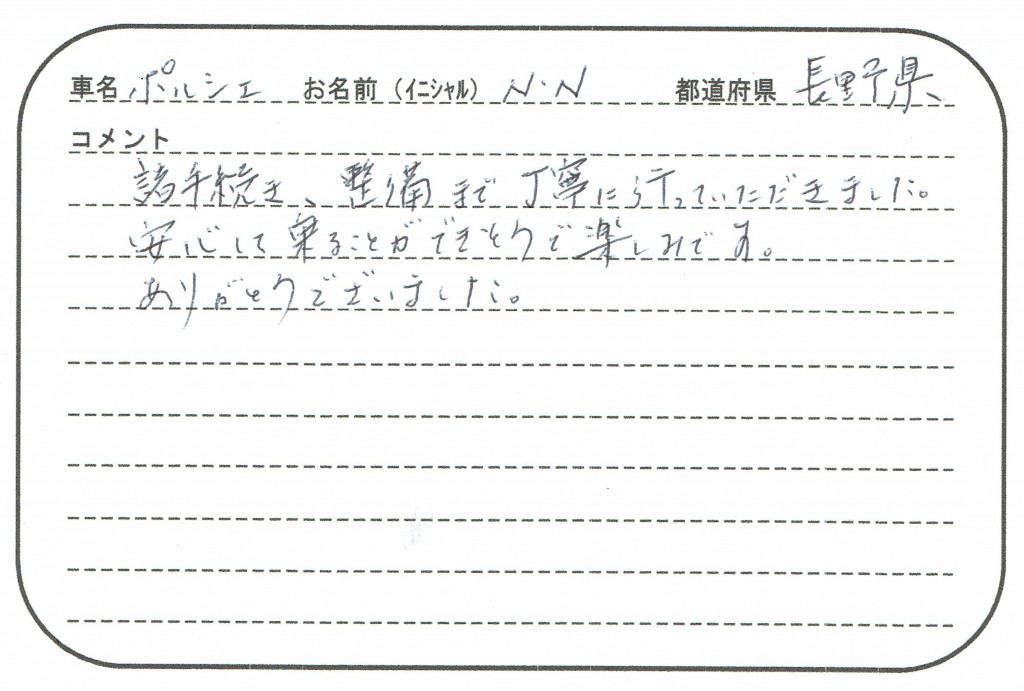 車名 ポルシェ お名前（イニシャル） N・N 都道府県 長野県
コメント
諸手続き、整備まで丁寧に行っていただきました。
安心して乗ることができそうで楽しみです。
ありがとうございました。